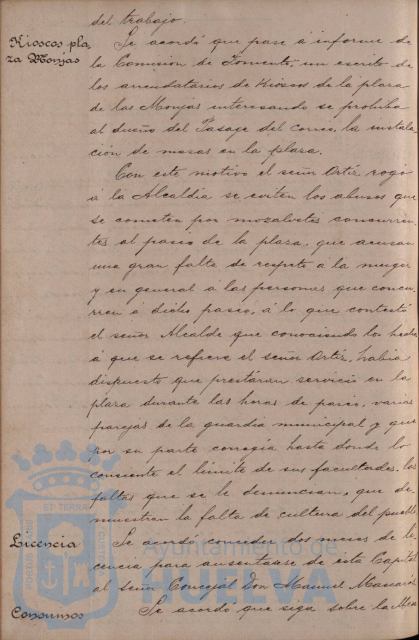 del trabajo.
Kioscos pla,
za Monjas
Se acordó que pase á informe de
la Comisión de Fomento, un escrito de
los arrendatarios de Kioscos de la plaza
de las Monjas interesando se prohiba
al dueño del Pasage del correo, la instala
ción de mesas en la plaza.
Con este motivo el señor Ortiz, rogó
á la Alcaldía se eviten los abusos que
se cometen por mozalvetes concurren
tes al paseo de la plaza, que acusan
una gran falta de respeto á la muger
y en general á las personas que concu
rren á dicho paseo, á lo que contestó
el señor Alcalde que conociendo los hechos
á que se refiere el señor Ortiz, había
dispuesto que prestaran servicio en la
plaza durante las horas de paseo, varias
parejas de la guardia municipal y que
por su parte corregia hasta donde lo
consiente el límite de sus facultades, las
faltas que se le denuncian, que de
muestran la falta de cultura del pueblo
Licencia
Se acordó conceder dos meses de li
cencia para ausentarse de esta Capital
al señor Concejál Don Manuel
Consumos
Se acordó que siga sobre la Mesa
Ayuntamiento de
HUELVA